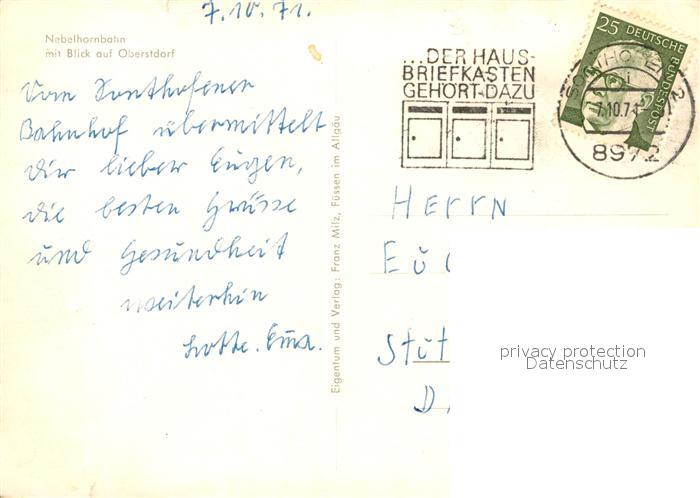 7.10.71.
Nebelhornbahn
mit Blick auf Oberstdorf
Vom Sonthofener
Bahnhof übermittelt
dir lieber Eugen,
die besten Grüsse
und Gesundheit
weiterhin
Lotte. Ema.
Eigentum und Verlag: Franz Milz, Füssen im Allgäu
...DER HAUS-
BRIEFKASTEN
GEHÖRT-DAZU
25 DEUTSCHE
BUNDESPOST
8972
HErrN
Eu
Stut
D.
privacy protection
Datenschutz